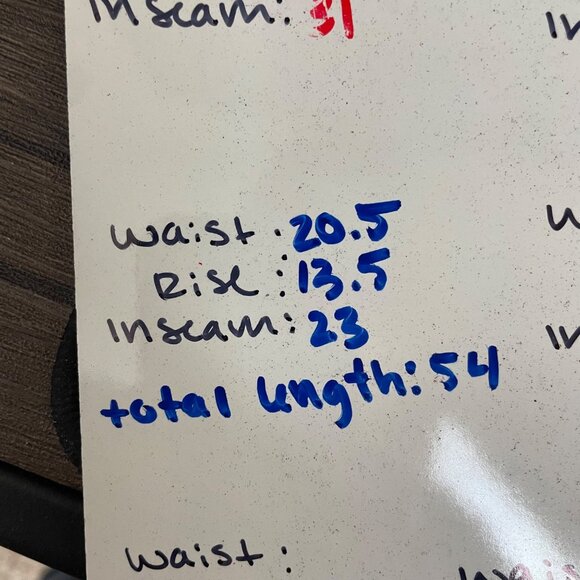 Inseam: 31
In
Waist: 20.5
W
Rise: 13.5
Inseam: 23
In
total length: 54
Waist:
Wais